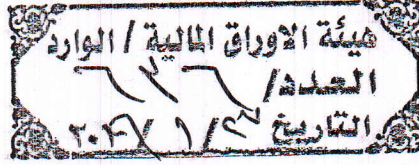 هيئة الاوراق المالية / الوارد
العدد/
التاريخ / ١ /